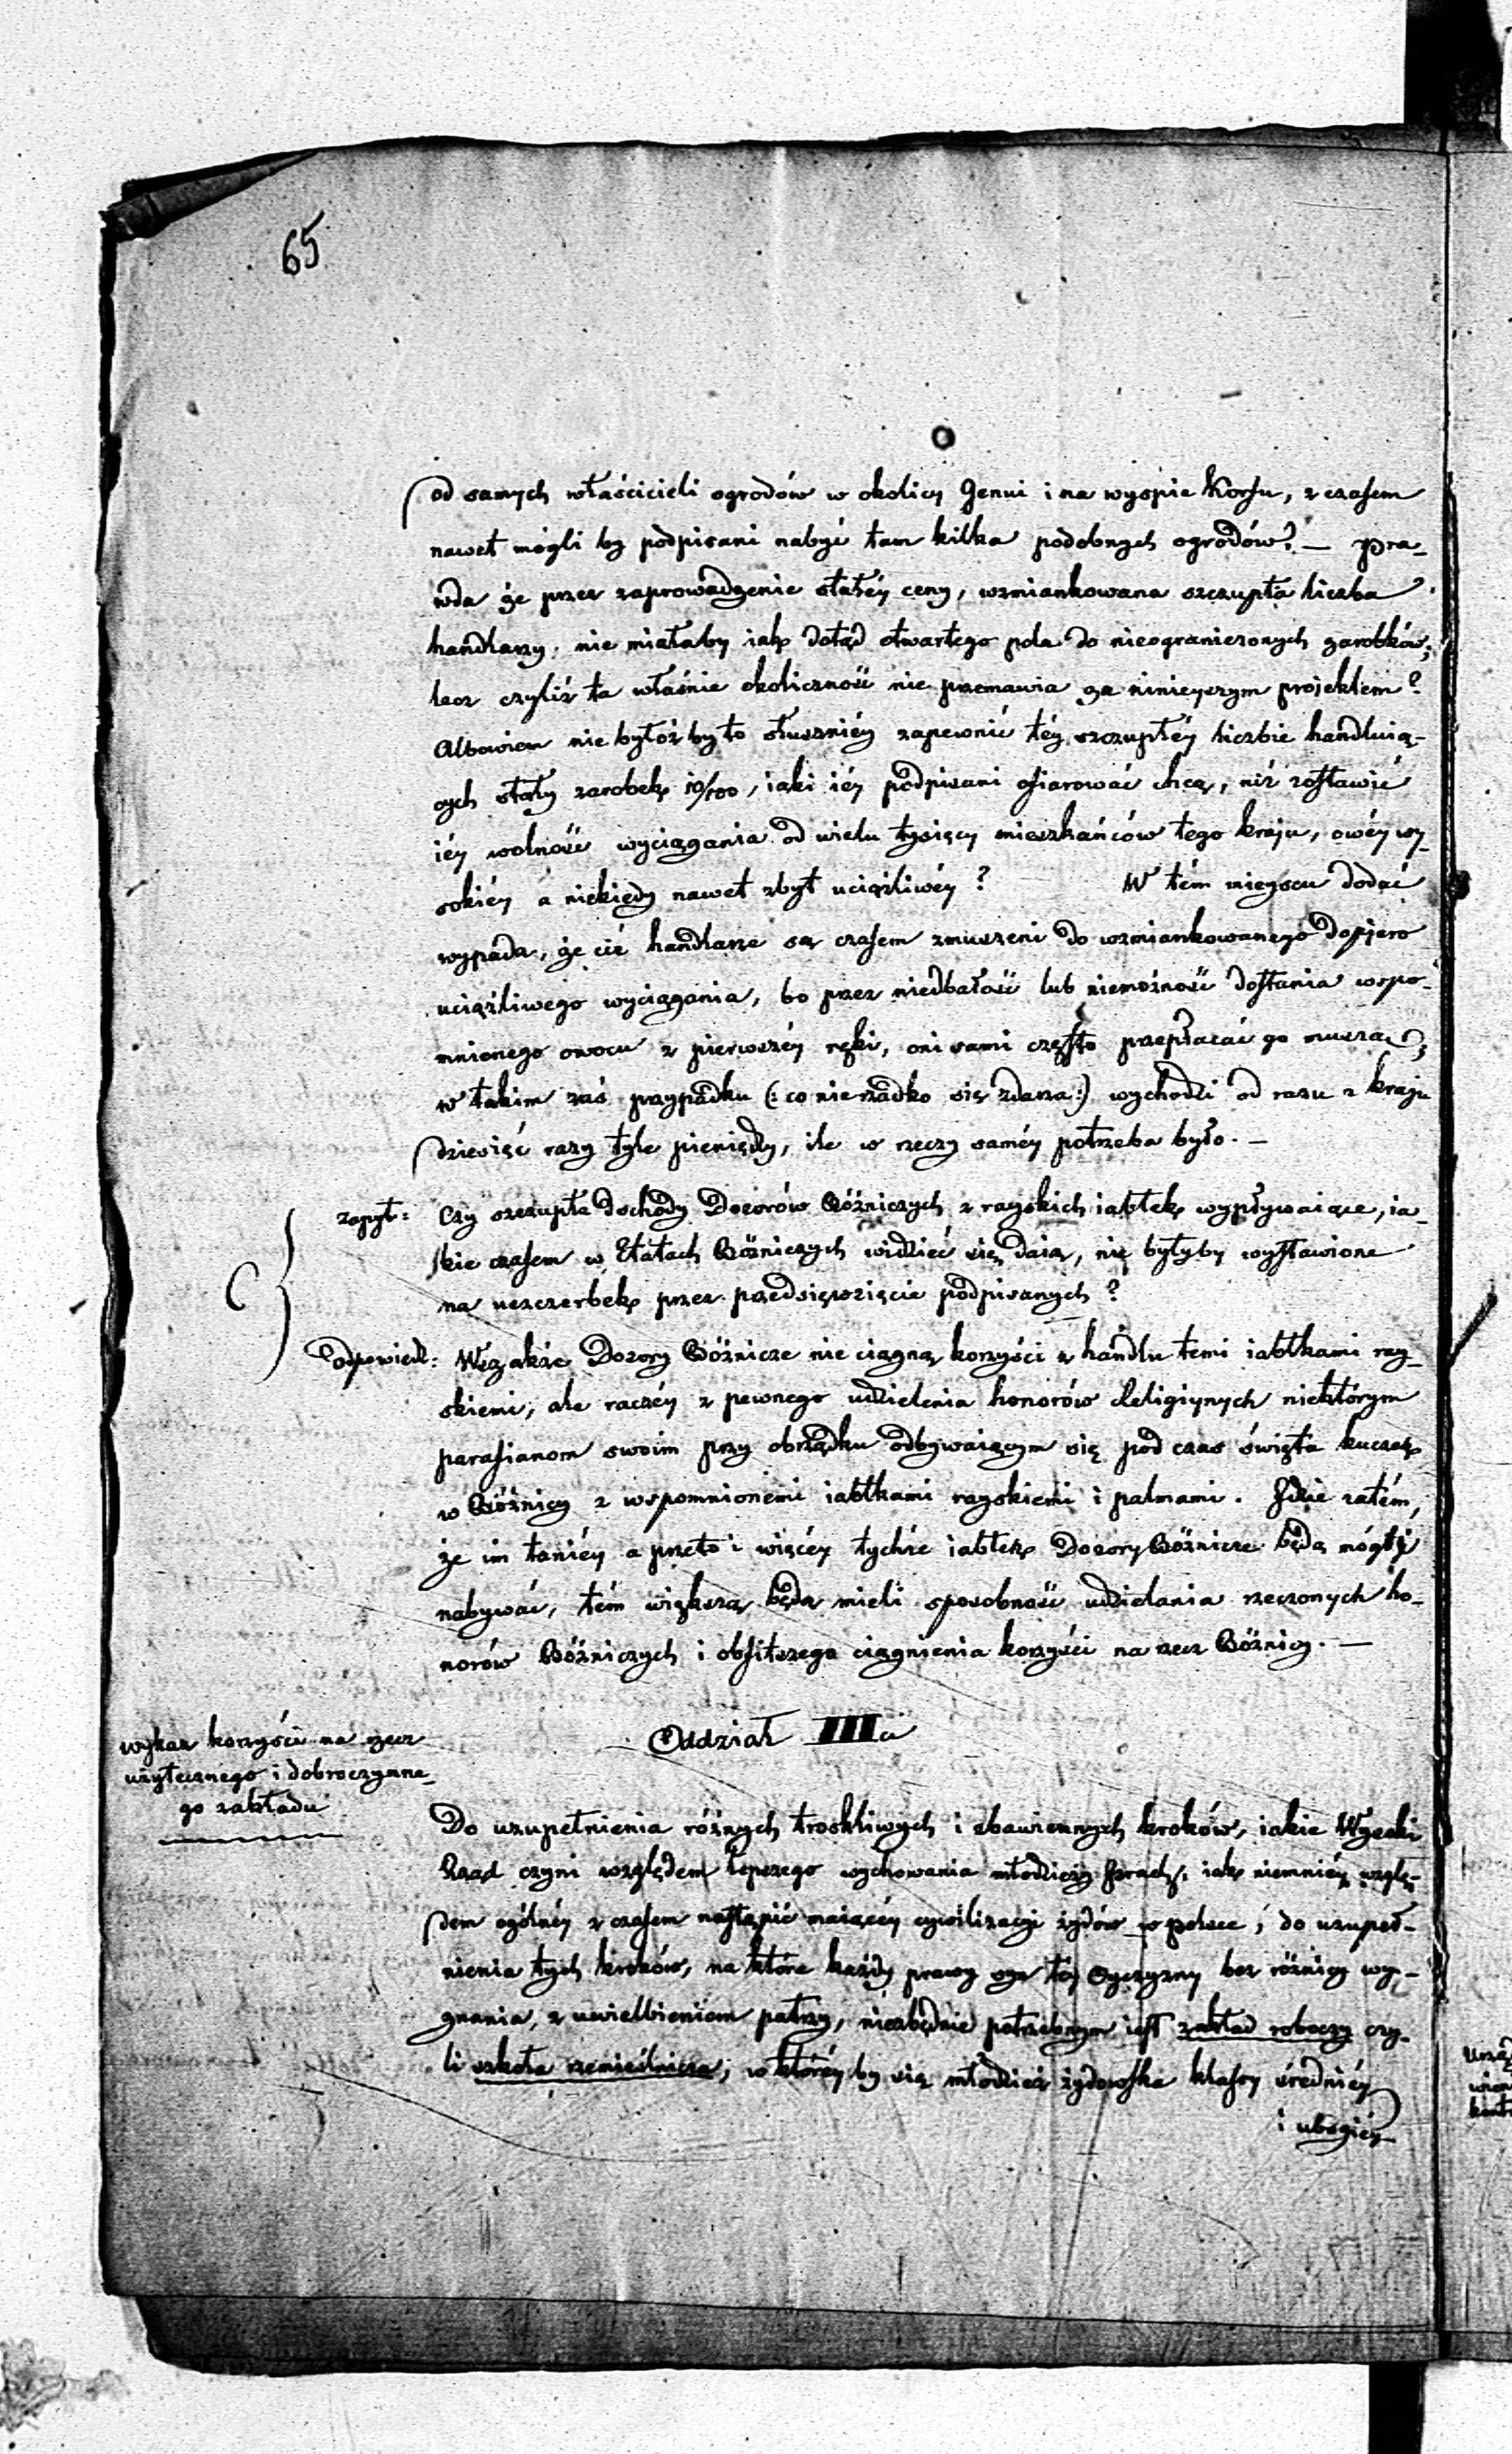 65
od samych właścicieli ogrodów w okolicy Genui i na wyspie Korfu, z czasem
nawet mogli by podpisani nabyć tam kilka podobnych ogrodów? — Pra-
wda że przez zaprowadzenie stałéy ceny, wzmiankowana szczupła liczba
handlarzy, nie miałaby iak dotąd otwartego pola do nieograniczonych zarobków;
lecz czyliż ta właśnie okoliczność nie przemawia za ninieyszym projektem?
Albowiem nie byłoż by to słuszniéy zapewnić téy szczupłéy liczbie handluią-
cych stały zarobek 10/100, iaki iéy podpisani ofiarować chcą, niż zostawić
iéy wolność wyciągania od wielu tysięcy mieszkańców tego kraju, owéy wy-
sokiéy a niekiedy nawet zbyt uciążliwéy? W tém mieyscu dodać
wypada, że ciż handlarze są czasem zmuszeni do wzmiankowanego dopiero
uciążliwego wyciągania, bo przez niedbałość lub niemożność dostania wspo-
mnionego owocu z pierwszéy ręki, oni sami często przepłacać go muszą;
w takim zaś przypadku (: co nie rzadko się zdarza :) wychodzi od razu z kraju
dziesięć razy tyle pieniędzy, ile w rzeczy saméy potrzeba było. —
zapyt: Czy szczupłe dochody Dozorów Bóżniczych z rayskich iabłek wypływaiące, ia-
kie czasem w Etatach Bóżniczych widzieć się daią, nie byłyby wystawione
na uszczerbek przez przedsięwzięcie podpisanych?
C
Odpowiedź: Wszakże Dozory Bóżnicze nie ciągną korzyści z handlu temi iabłkami ray-
skiemi, ale raczéy z pewnego udzielenia honorów Religiynych niektórym
parafianom swoim przy obrządku odbywaiącym się pod czas święta kuczek
w Bóżnicy z wspomnionemi iabłkami rayskiemi i palmami. Idzie zatém,
że im taniéy a przeto i więcéy tychże iabłek Dozory Bóżnicze będą mogły
nabywać, tém większą będą mieli sposobność udzielania rzeczonych ho-
norów Bóżniczych i obfitszego ciągnienia korzyści na rzecz Bóżnicy. —
Oddział III ci
wykaz korzyści na rzecz
użytecznego i dobroczynne-
go zakładu
Do uzupełnienia różnych troskliwych i zbawiennych kroków, iakie Wysoki
Rząd czyni względem lepszego wychowania młodzieży Izrael:, iak niemniéy wzglę-
dem ogólnéy z czasem nastąpić maiącéy cywilizacyi żydów w polsce; do uzupeł-
nienia tych kroków, na które każdy prawy syn téj Oyczyzny bez różnicy wy-
znania, z uwielbieniem patrzy, niezbędnie potrzebnym iest zakład roboczy czy-
li szkoła rzemieślnicza; w któréy by się młodzież żydowska klassy średniéy
i ubogiéy